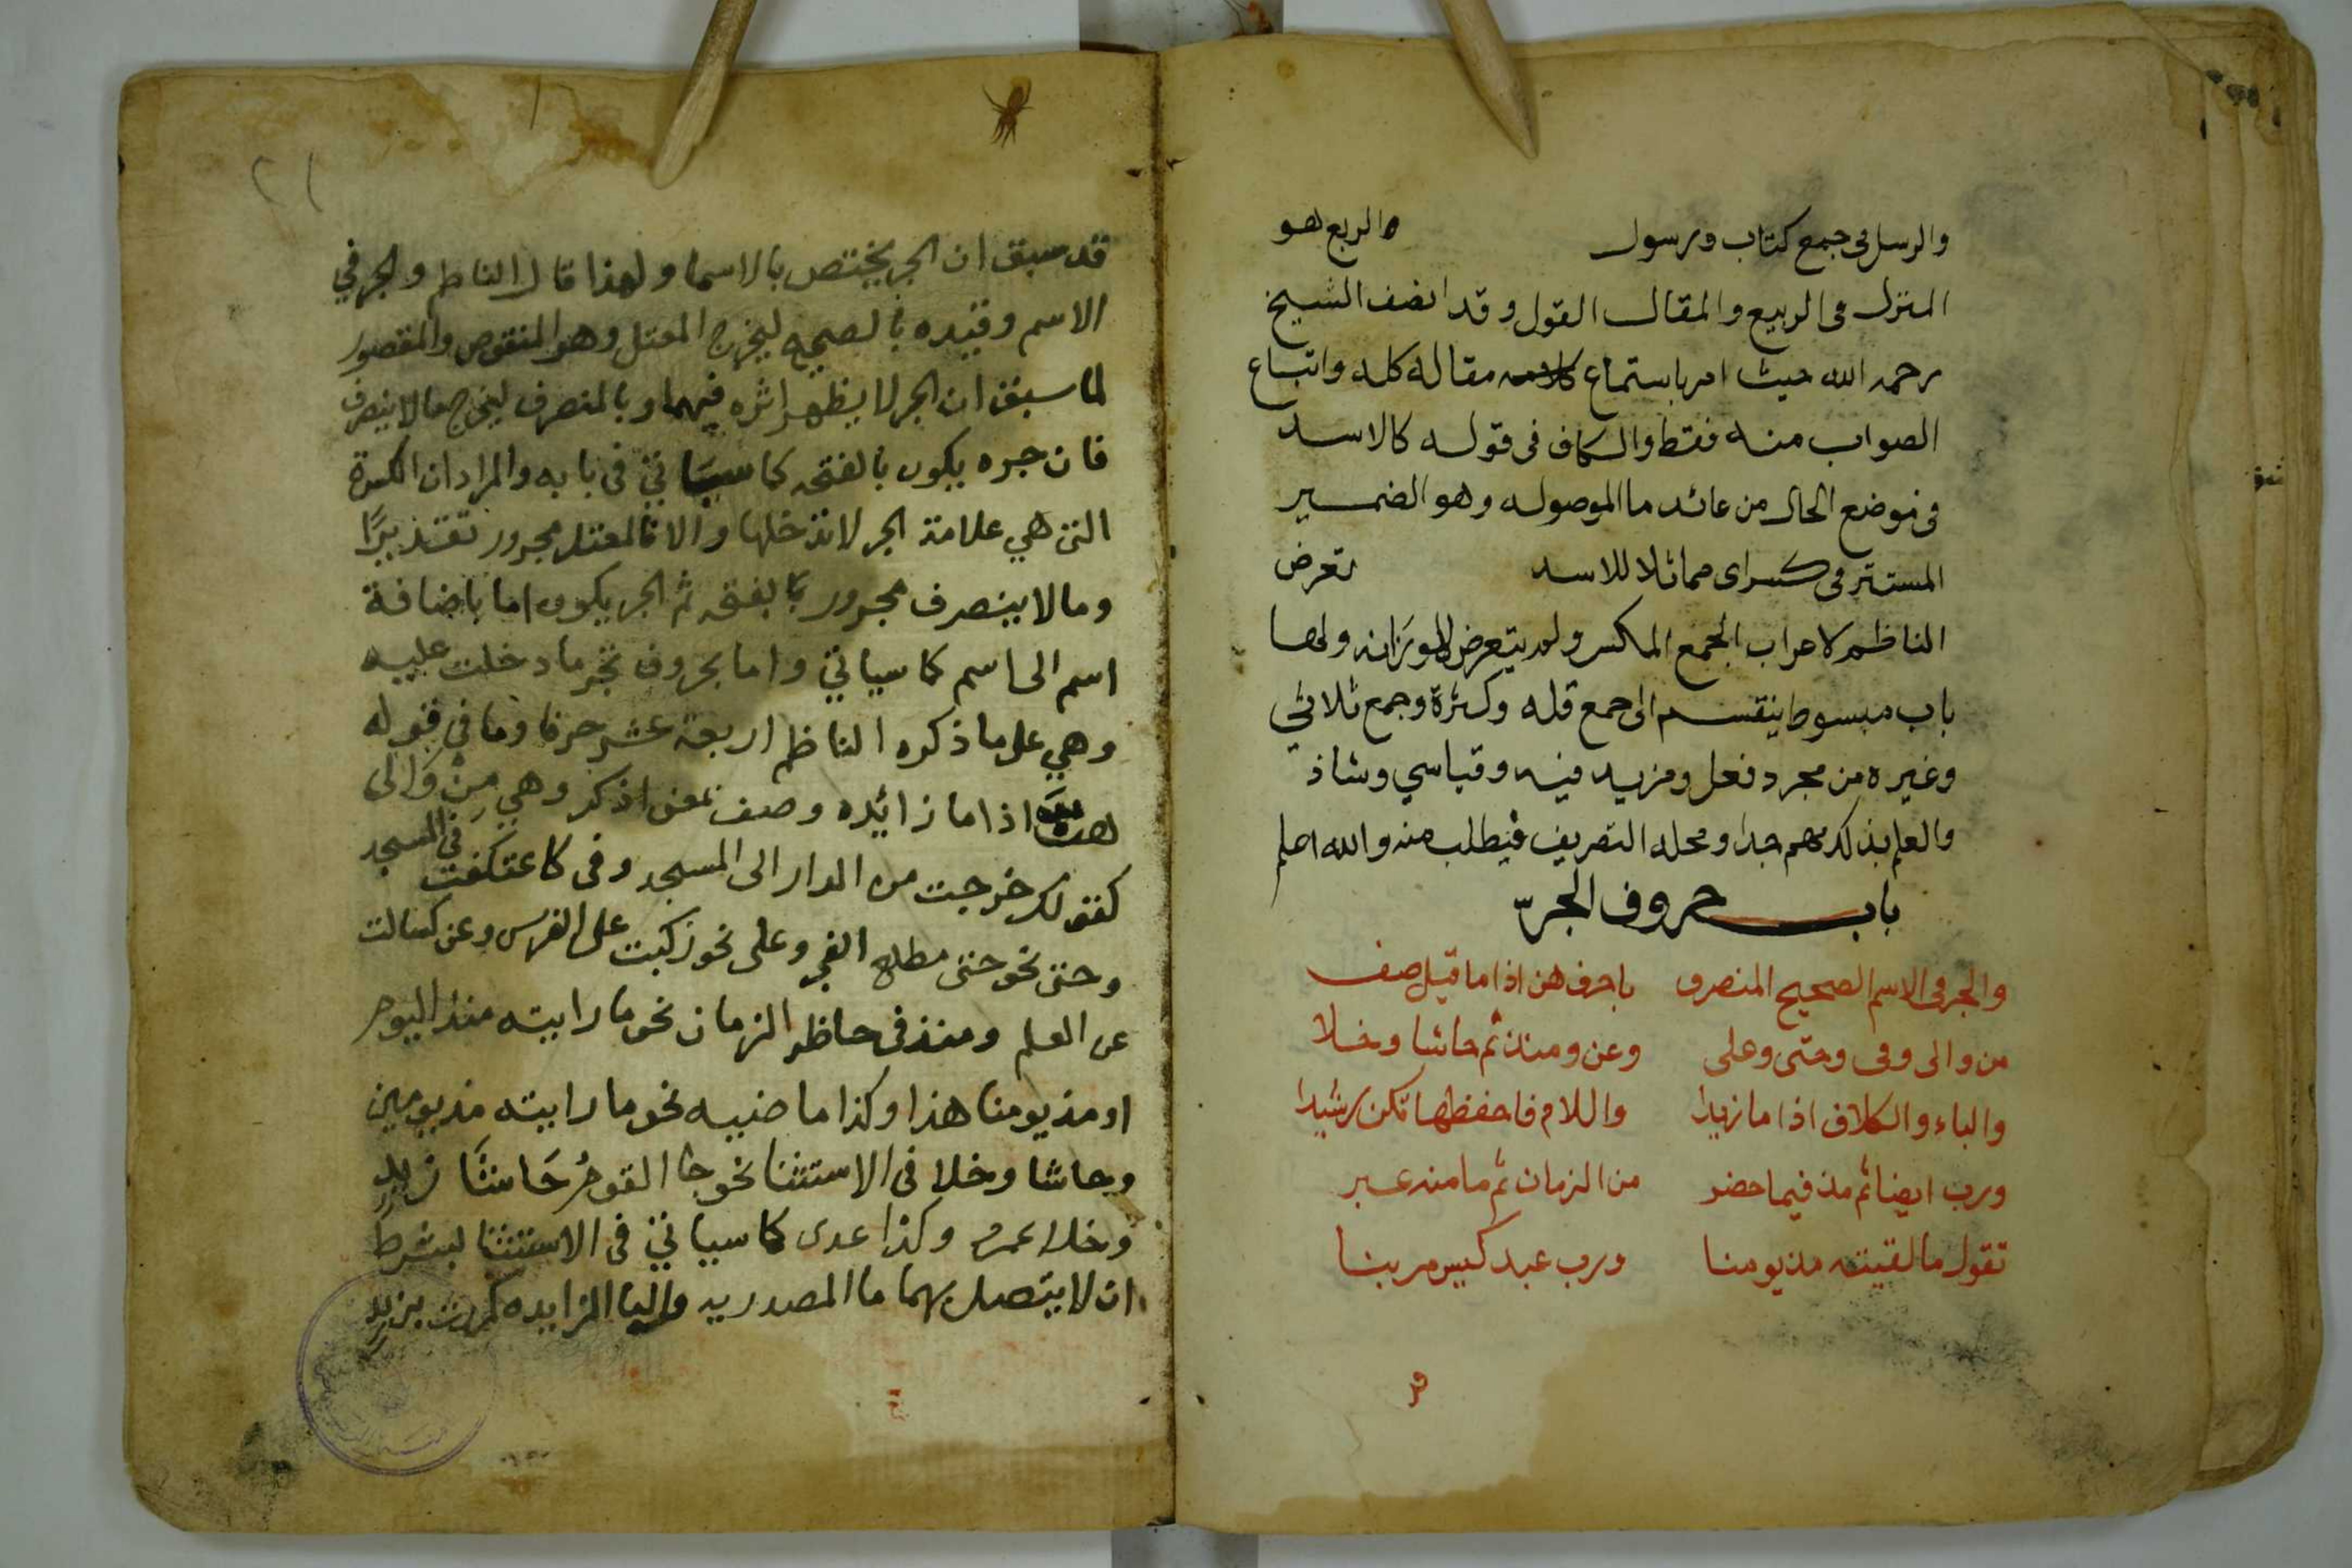 والرسل في جمع كتاب ورسول والربع هو
المنزل في الربيع والمقال القول وقد انصف الشيخ
رحمه الله حيث امر باستماع مقاله كله واتباع
الصواب منه فقط والكاف في قوله كالاسد
في موضع الحال من عائد ما الموصوله وهو الضمير
المستتر في كسر اى مماثلا للاسد تعرض
الناظم لاعراب الجمع المكسر ولم يتعرض لاوزانه ولها
باب مبسوط ينقسم الى جمع قله وكثرة وجمع ثلاثي
وغيره من مجرد فعل ومزيد فيه وقياسي وشاذ
والعلم بذلك مهم جدا ومحله التصريف فيطلب منه والله اعلم
باب حروف الجرّ
والجر في الاسم الصحيح المنصرف باحرف هن اذا ما قيل صف
من والى وفى وحتى وعلى وعن ومنذ ثم حاشا وخلا
والباء والكاف اذا ما زيدا واللام فاحفظها تكن رشيدا
ورب ايضا ثم مذ فيما حضر من الزمان ثم ما منه عبر
تقول ما لقيته مذ يومنا ورب عبد كيس مر بنا
٢١
قد سبق ان الجر يختص بالاسما ولهذا قال الناظم والجر في
الاسم وقيده بالصحيح ليخرج المعتل وهو المنقوص والمقصور
لما سبق ان الجر لا يظهر اثره فيهما وبالمنصرف ليخرج مالا ينصرف
فان جره يكون بالفتحه كما سياتي في بابه والمراد ان الكسرة
التى هي علامة الجر لا تدخلها والا فالمعتل مجرور تقديرًا
وما لا ينصرف مجرور بالفتحه ثم الجر يكون اما باضافة
اسم الى اسم كما سياتي واما بحروف تجر ما دخلت عليه
وهي على ما ذكره الناظم اربعة عشر حرفا وما في قوله
هنَّ اذا ما زائده وصف بمعنى اذكر وهي مِنْ وَالى
كقولك خرجت من الدار الى المسجد وفى كاعتكفت في المسجد
وحتى نحو حتى مطلع الفجر وعلى نحو ركبت على الفرس وعن كسالت
عن العلم ومنذ في حاظر الزمان نحو ما رايته منذ اليوم
او مذ يومنا هذا وكذا ماضيه نحو ما رايته مذ يومين
وحاشا وخلا فى الاستثنا نحو جا القومُ حَاشَا زيدٍ
وخلا عمرو وكذا عدى كما سياتي في الاستثنا بشرط
ان لا يتصل بهما ما المصدريه والبا الزايده كمررت بزيدٍ